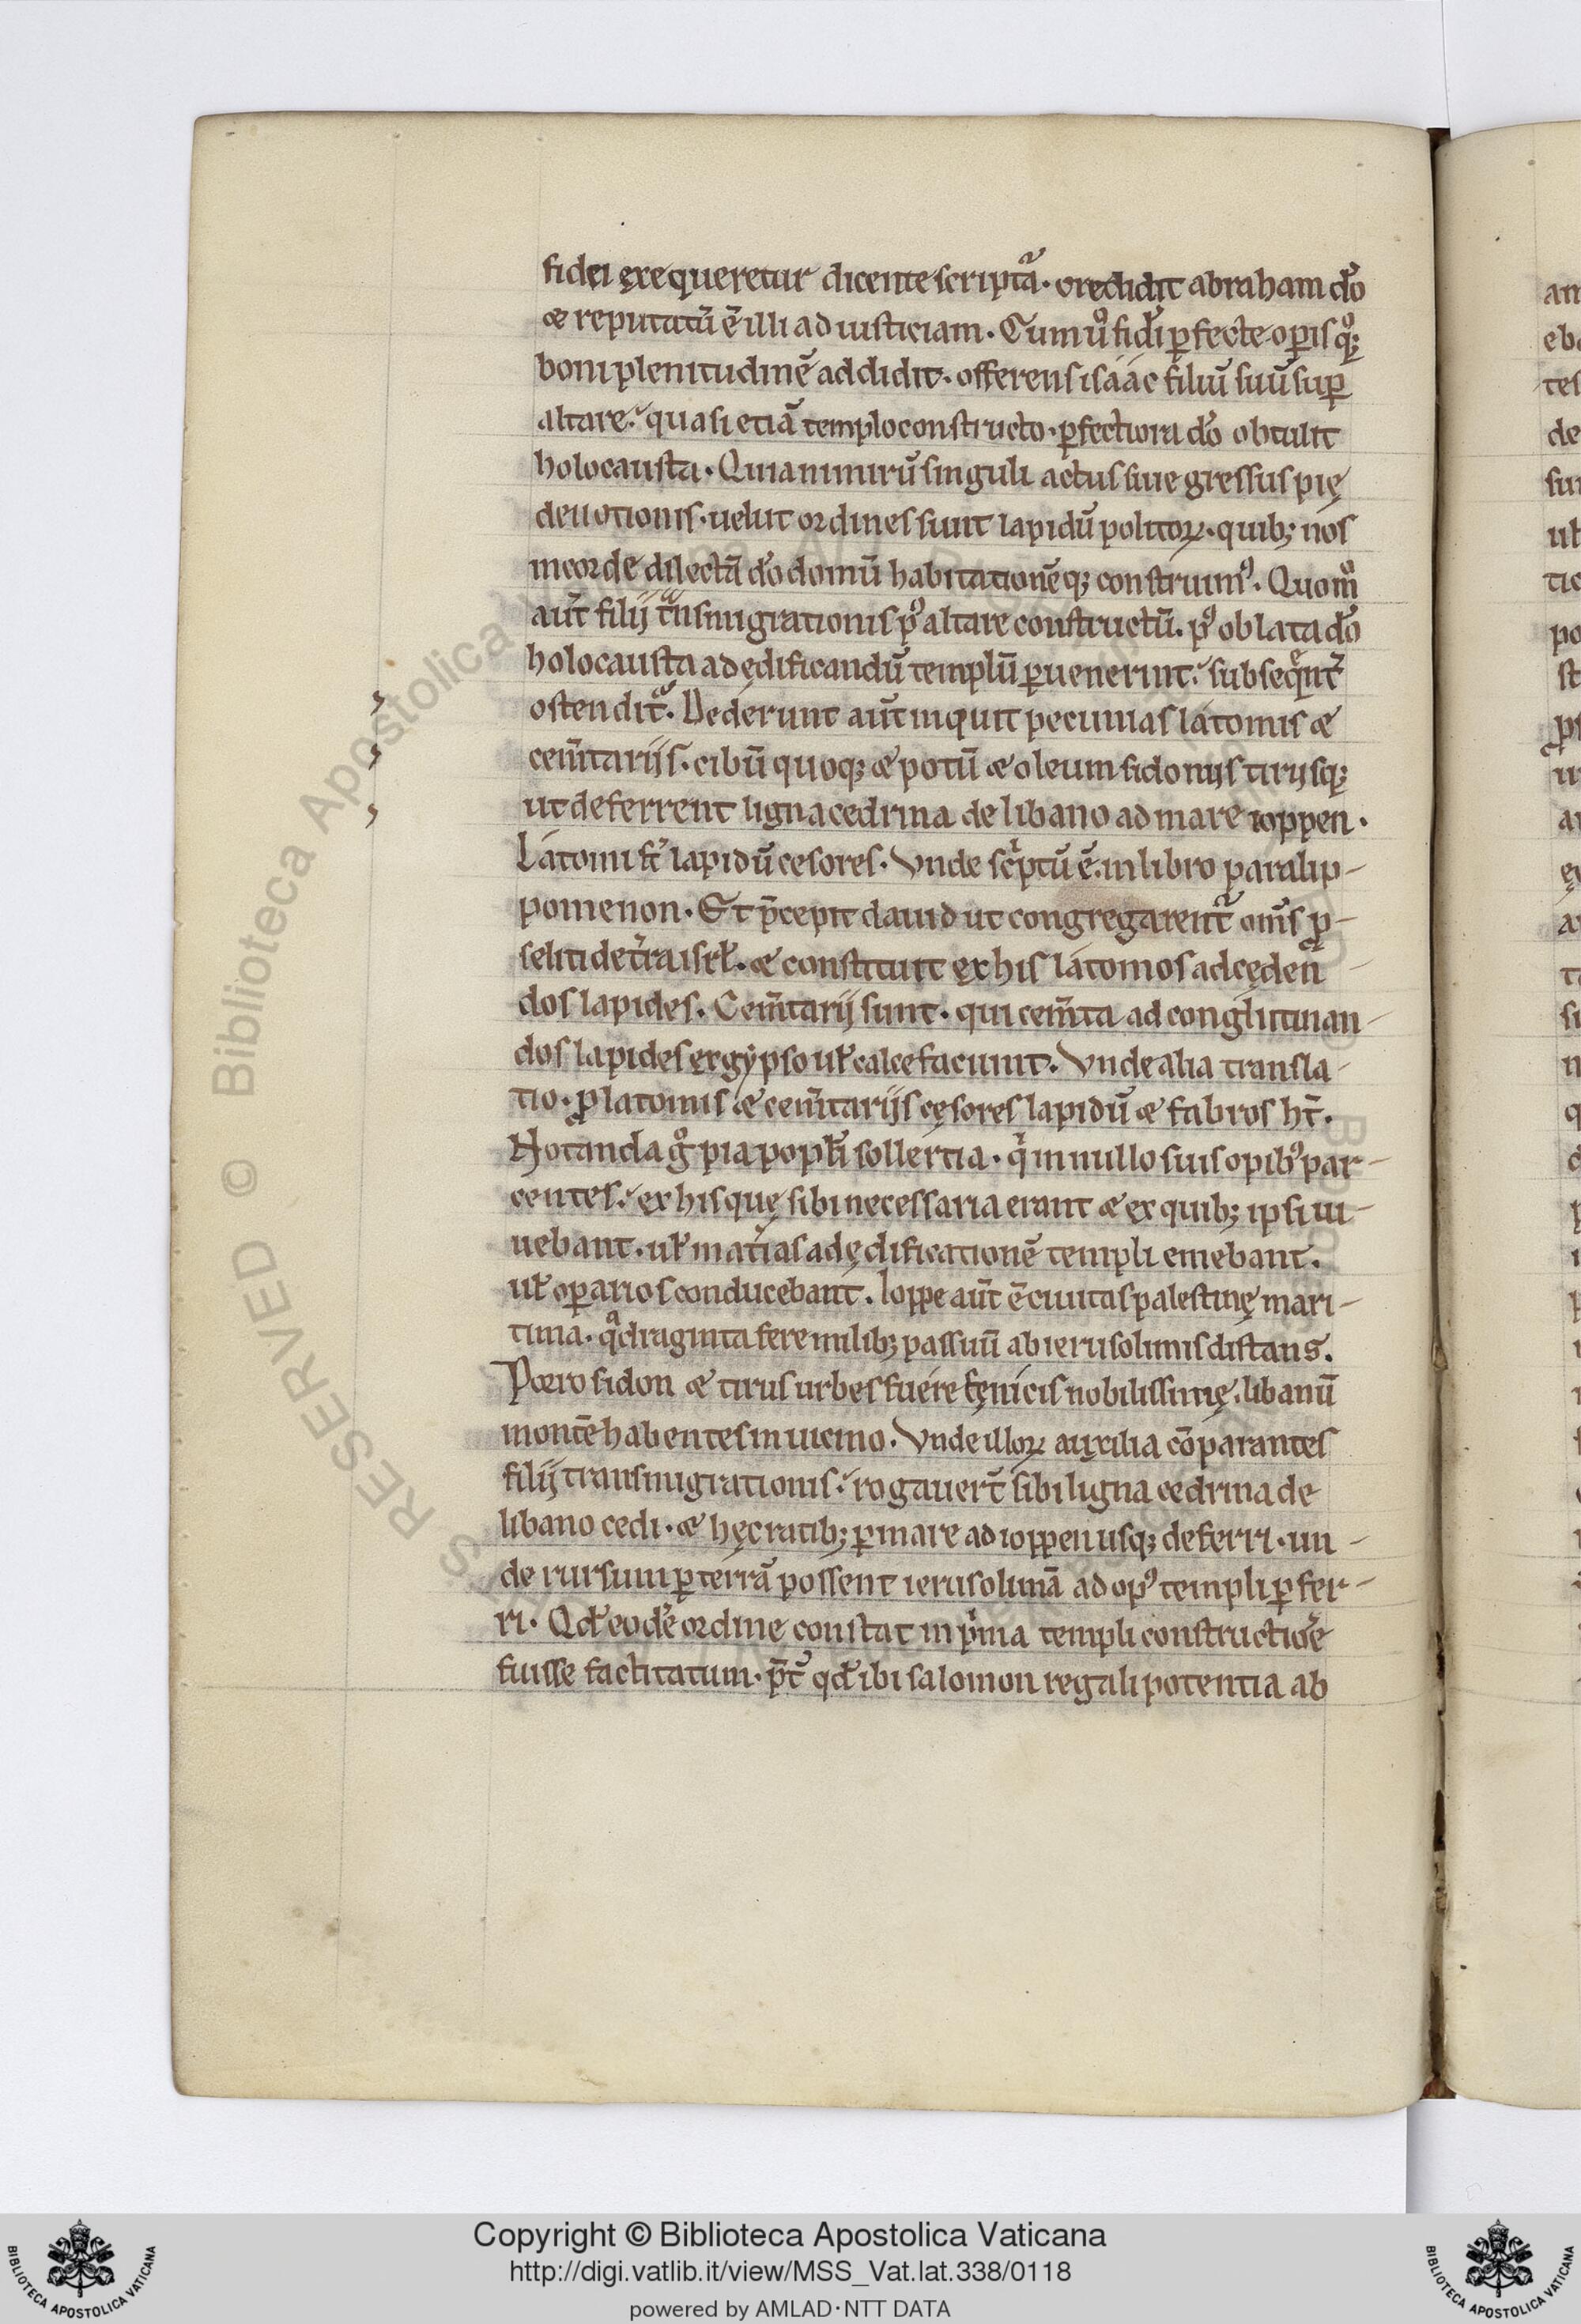 fidei ęxequeretur dicente scriptᷓa. credidit abraham do᷒
& reputatū ē illi ad iusticiam. Cum uͦ fidi᷒ ꝑfecte oꝑisqͦꝫ
boni plenitudinē addidit. offerens isááć filiū suū suꝑ
altare.᷒ quasi etiā templo constructo. ꝑfectiora do᷒ obtulit
holocausta. Quia nimirū singuli actus siue gressus pię
deuotionis. uelut ordines sunt lapidū politoꝝ. quibꝫ nos
in corde dilectā do᷒ domū habitationēqꝫ construimꝰ. Quomͦ
aut̄ filij tᷓnsmigrationis pꝰ altare constructū. pꝰ oblata do᷒
holocausta ad ędificandū templū ꝑuenerint.᷒ subseqͤnt᷒
ostendit᷒. Dederunt aut̄ inquit pecunias látomis &
cem̄tarijs. cibū quoqꝫ & potū & oleum sidonijs tirijsqꝫ
ut deferrent ligna cedrina de libano ad mare ioppen.
Látomi st̄ lapidū cesores. Vnde scͥptū ē in libro paralip-
pomenon. Et p̄cepit dauid ut congregarent᷒ om̄s ꝓ-
seliti de tr̄a isrł. & constituit ęx his látomos ad cęden
dos lapides. Cem̄tarij sunt. qui cem̄ta ad conglutinan-
dos lapides ex gẏpso ut calce faciunt. Vnde alia transla-
tio. ꝓ latomis & cem̄tarijs cęsores lapidū & fabros ht̄.
Notanda gͦ pia popłi sollertia. qͥ in nullo suis opibꝰ par-
centes.᷒ ex his quę sibi necessaria erant & ex quibꝫ ipsi ui-
uebant. uł mat̄ias ad ędificationē templi emebant.
uł oꝑarios conducebant. Ioppe aut̄ ē ciuitas palestinę mari-
tima. qᷓdraginta fere milibꝫ passuū ab ierusolimis distans.
Porro sidon & tirus urbes fuére fęnicis nobilissimę. libanū
montē habentes in uicino. Vnde illoꝝ auxilia cōparantes
filij transmigrationis.᷒ rogauert̄ sibi ligna cedrina de
libano cedi. & hęc ratibꝫ ꝑ mare ad ioppen usqꝫ deferri. un-
de rursum ꝑ terrā possent ierusolimā ad opꝰ templi ꝑfer-
ri. Qđ eodē ordine constat in pͥma templi constructiōe
fuisse factitatum. p̄t᷒ qđ ibi salomon regali potentia ab
Copyright © Biblioteca Apostolica Vaticana
http://digi.vatlib.it/view/MSS_Vat.lat.338/0118
powered by AMLAD·NTT DATA